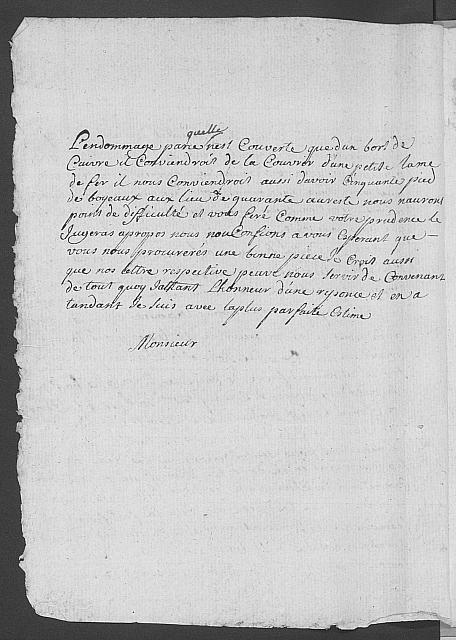 quelle
L'endommage parce n'est Couverte que d'un bort de
Cuivre il Conviendroit de la Couvrir d'une petite lame
de fer il nous Conviendroit aussi d'avoir Cinquante pied
de boyeaux aux lieu de quarante au reste nous naurons
point de difficulté et vous feré Comme votre prudence le
Jugeras apropos nous nous Confions a vous Esperant que
vous nous procurerés une bonne piece Je Crois aussi
que nos lettre respective peuve nous servir de Convenant
de tout quoy Jattant l'honneur d'une reponce et en a
tandant Je suis avec la plus parfaite Estime
Monsieur